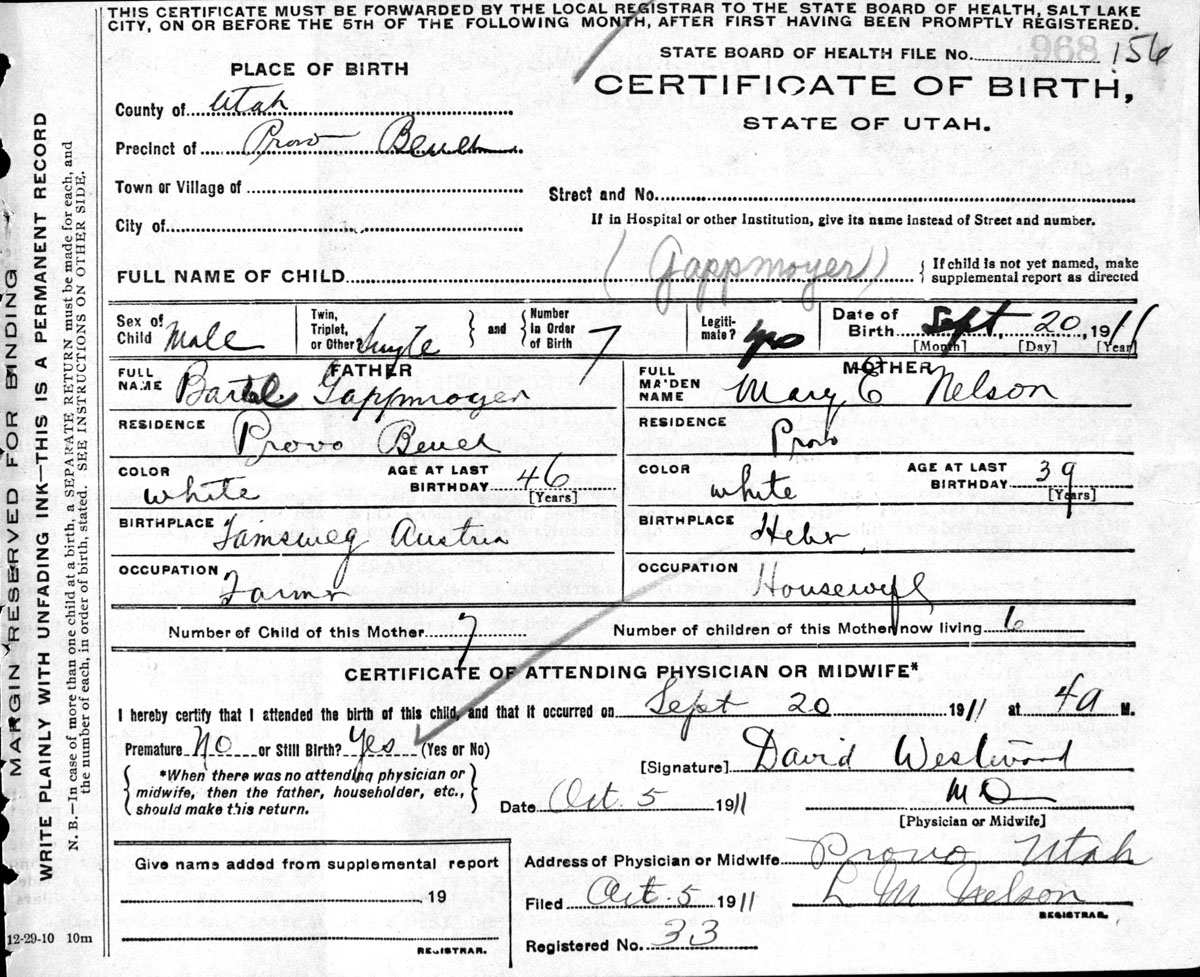 THIS CERTIFICATE MUST BE FORWARDED BY THE LOCAL REGISTRAR TO THE STATE BOARD OF HEALTH, SALT LAKE
CITY, ON OR BEFORE THE 5TH OF THE FOLLOWING MONTH, AFTER FIRST HAVING BEEN PROMPTLY REGISTERED.
STATE BOARD OF HEALTH FILE No. 156
968
PLACE OF BIRTH
CERTIFICATE OF BIRTH,
STATE OF UTAH.
County of Utah
Precinct of Provo Bench
Town or Village of
Street and No.
City of
If in Hospital or other Institution, give its name instead of Street and number.
FULL NAME OF CHILD (Gappmayer) { If child is not yet named, make
supplemental report as directed
Sex of Child Male
Twin, Triplet, or Other? Single } and { Number in Order of Birth 7
Legiti-mate? yes
Date of Birth Sept 20, 1911
[Month] [Day] [Year]
FATHER
FULL NAME Bartel Gappmayer
RESIDENCE Provo Bench
COLOR white AGE AT LAST BIRTHDAY 46
[Years]
BIRTHPLACE Tamsweg Austria
OCCUPATION Farmer
MOTHER
FULL MAIDEN NAME Mary E Nelson
RESIDENCE Provo
COLOR white AGE AT LAST BIRTHDAY 39
[Years]
BIRTHPLACE Heber
OCCUPATION Housewife
Number of Child of this Mother 7 Number of children of this Mother now living 6
CERTIFICATE OF ATTENDING PHYSICIAN OR MIDWIFE*
I hereby certify that I attended the birth of this child, and that it occurred on Sept 20 1911 at 4a M.
Premature No or Still Birth? Yes (Yes or No)
{ *When there was no attending physician or
midwife, then the father, householder, etc.,
should make this return. }
[Signature] David Westwood
Date Oct. 5 1911 MD
[Physician or Midwife]
Give name added from supplemental report
, 19
REGISTRAR.
Address of Physician or Midwife Provo Utah
Filed Oct. 5 1911 L M Nelson
REGISTRAR.
Registered No. 33
12-29-10 10m
MARGIN RESERVED FOR BINDING
WRITE PLAINLY WITH UNFADING INK—THIS IS A PERMANENT RECORD
N. B.—In case of more than one child at a birth, a SEPARATE RETURN must be made for each, and
the number of each, in order of birth, stated. SEE INSTRUCTIONS ON OTHER SIDE.